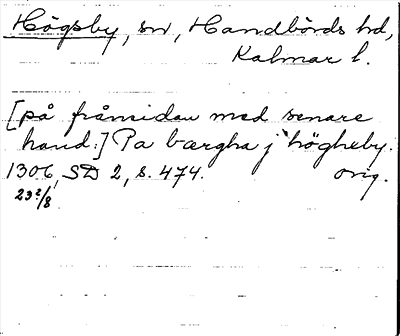 Högsby, sn, Handbörds hd,
Kalmar l.
[på frånsidan med senare
hand:] Pa bærgha j högheby.
1306, SD 2, s. 474. orig.
23 2/8